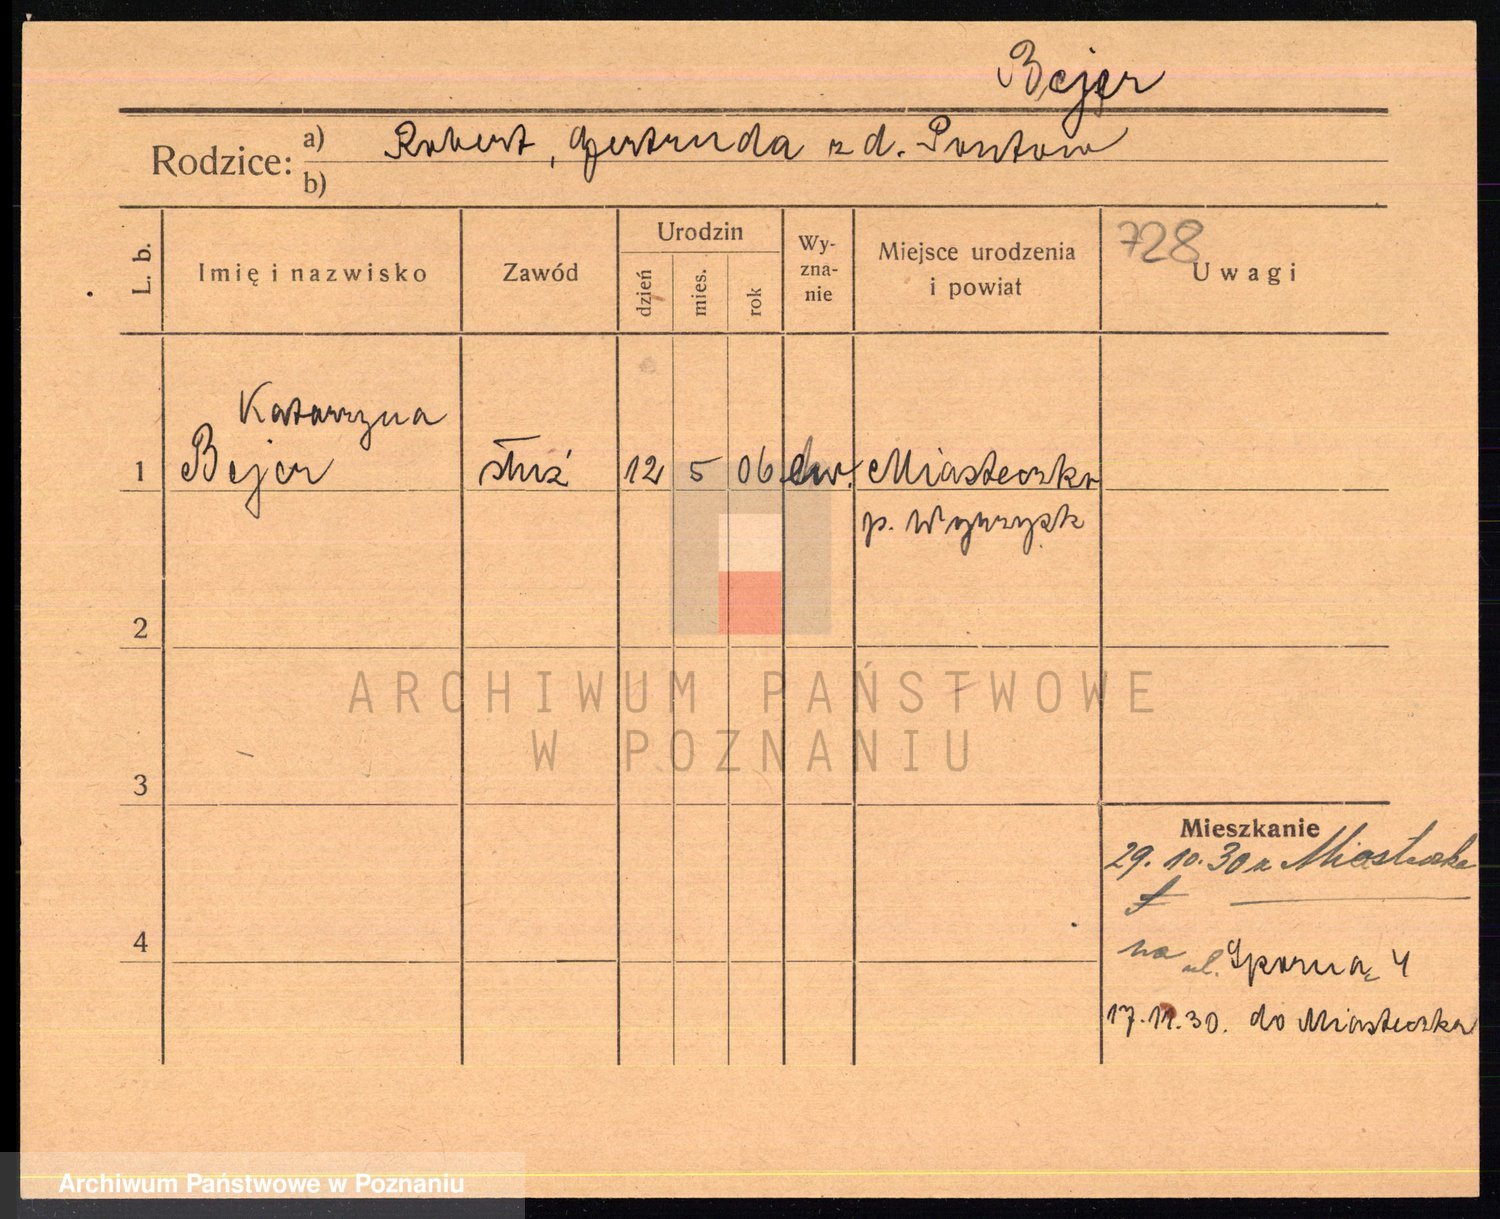 Bejer
Rodzice: a) Robert, Gertruda z d. Pontow
b)
L. b.
Imię i nazwisko
Zawód
Urodzin
dzień
mies.
rok
Wy-
zna-
nie
Miejsce urodzenia
i powiat
728
Uwagi
Katarzyna
1 Bejer służ 12 5 06 ew. Miasteczko
p. Wyrzysk
2
ARCHIWUM PAŃSTWOWE
W POZNANIU
3
Mieszkanie
29. 10. 30 z Miasteczka
4
na ul. Sporną 4
17.11.30. do Miasteczka
Archiwum Państwowe w Poznaniu